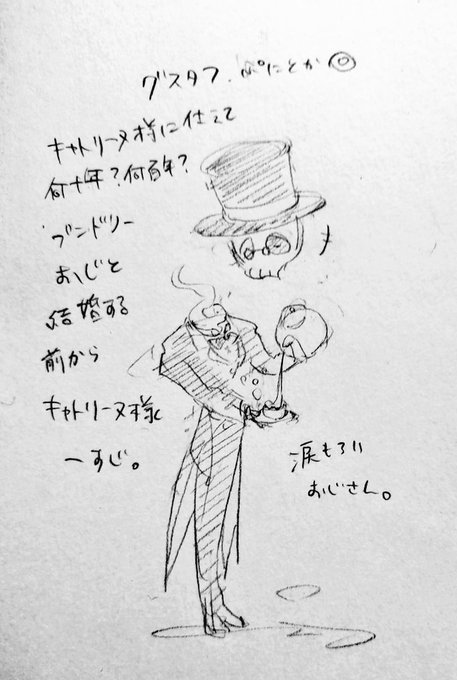 グスタフ. ぷにとか◎
キャトリーヌ様に仕えて
何十年?何百年?
ブンドリー
おじと
結婚する
前から
キャトリーヌ様
一すじ。
涙もろい
おじさん。